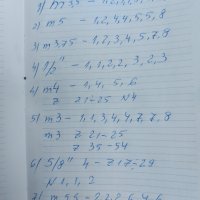 1) m 3,5 - 1,2,1,1,
2) m 5 - 1,2,4,4,5,5,8
3) m 3,75 - 1,2,3,4,5,7,9
4) 1/2" - 1,1,2,2,3,2,3
4) m4 - 1,4,5,6
z 21-25 N4
5) m3 - 1,1,3,4,4,7,7,8
m3 z 21-25
z 35-54
6) 5/8" 4 - z 17-29
N 1,1,2
7) m 5,5 - 2,2,8,6,4,6